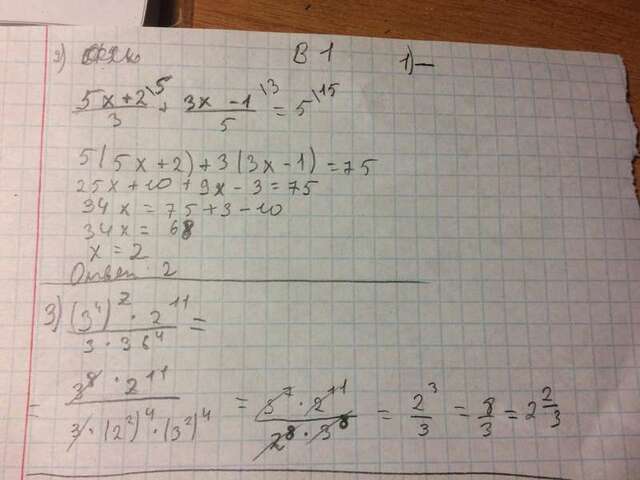 В 1
1) —
2)
5x+2\5 / 3 + 3x-1\3 / 5 = 5\15
5(5x+2)+3(3x-1)=75
25x+10+9x-3=75
34x=75+3-10
34x=68
x=2
Ответ 2
3) (3⁴)² · 2¹¹ / 3 · 36⁴ =
= 3⁸ · 2¹¹ / 3 · (2²)⁴ · (3²)⁴ = 3⁷ · 2¹¹ / 2⁸ · 3⁸ = 2³/3 = 8/3 = 2 2/3